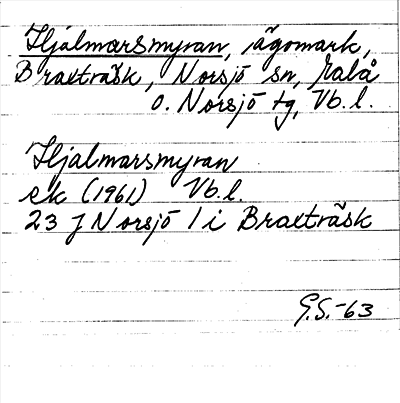 Hjalmarsmyran, ägomark,
Braxträsk, Norsjö sn, Malå
o. Norsjö tg, Vb.l.
Hjalmarsmyran
ek (1961) Vb.l.
23 J Norsjö 1 i Braxträsk
G.S.-63